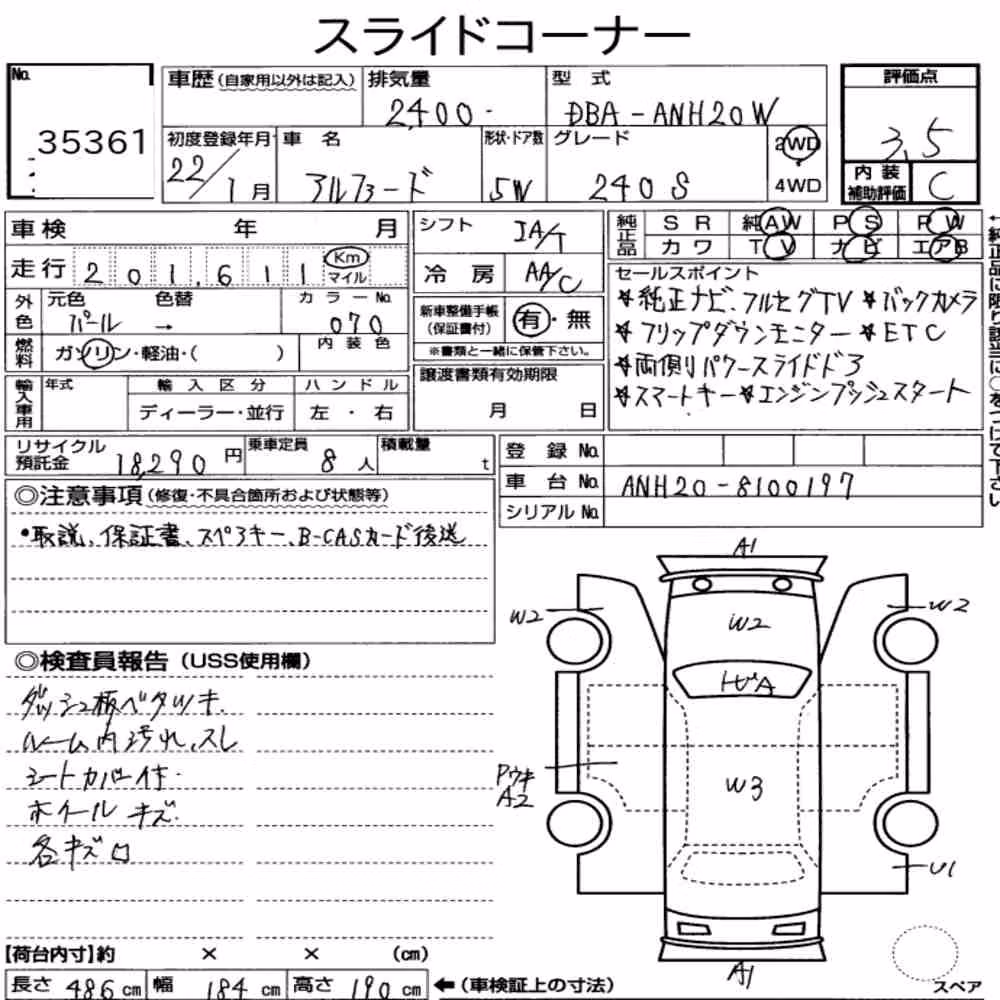 スライドコーナー
No. 35361
車歴(自家用以外は記入) 排気量 2,400- 型式 DBA-ANH20W
初度登録年月 22/1月 車名 アルファード 形状・ドア数 5W グレード 240S 2WD 4WD
評価点 3.5
内装補助評価 C
車検 年 月
走行 201,611 Km マイル
外色 元色 パール 色替 → カラーNo. 070 内装色
燃料 ガソリン・軽油・( )
輸入車用 年式 輸入区分 ディーラー・並行 ハンドル 左・右
シフト IA/T
冷房 AA/C
新車整備手帳(保証書付) 有・無
※書類と一緒に保管下さい。
譲渡書類有効期限
月 日
純正品 SR 純AW PS PW
カワ TV ナビ エアB
←純正品に限り該当に○をつけて下さい
セールスポイント
★純正ナビ、フルセグTV ★バックカメラ
★フリップダウンモニター ★ETC
★両側パワースライドドア
★スマートキー★エンジンプッシュスタート
リサイクル預託金 18,290円 乗車定員 8人 積載量 t
登録No.
車台No. ANH20-8100197
シリアルNo.
◎注意事項(修復・不具合箇所および状態等)
•取説、保証書、スペアキー、B-CASカード後送
◎検査員報告(USS使用欄)
ダッシュ板ベタツキ.
ルーム内汚れ、スレ
シートカバー付.
ホイールキズ.
各キズロ
A1
W2 W2 W2
トビA
Pウキ
A2
W3
U1
A1
スペア
【荷台内寸】約 × × (cm)
長さ 486cm 幅 184cm 高さ 190cm ←(車検証上の寸法)